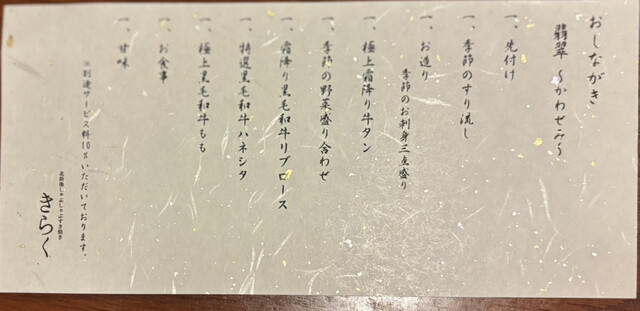 おしながき
翡翠 ～かわせみ～
一、先付け
一、季節のすり流し
一、お造り
季節のお刺身三点盛り
一、極上霜降り牛タン
一、季節の野菜盛り合わせ
一、霜降り黒毛和牛リブロース
一、特選黒毛和牛ハネシタ
一、極上黒毛和牛もも
一、お食事
一、甘味
※別途サービス料10%いただいております。
北新地しゃぶしゃぶすき焼き
きらく